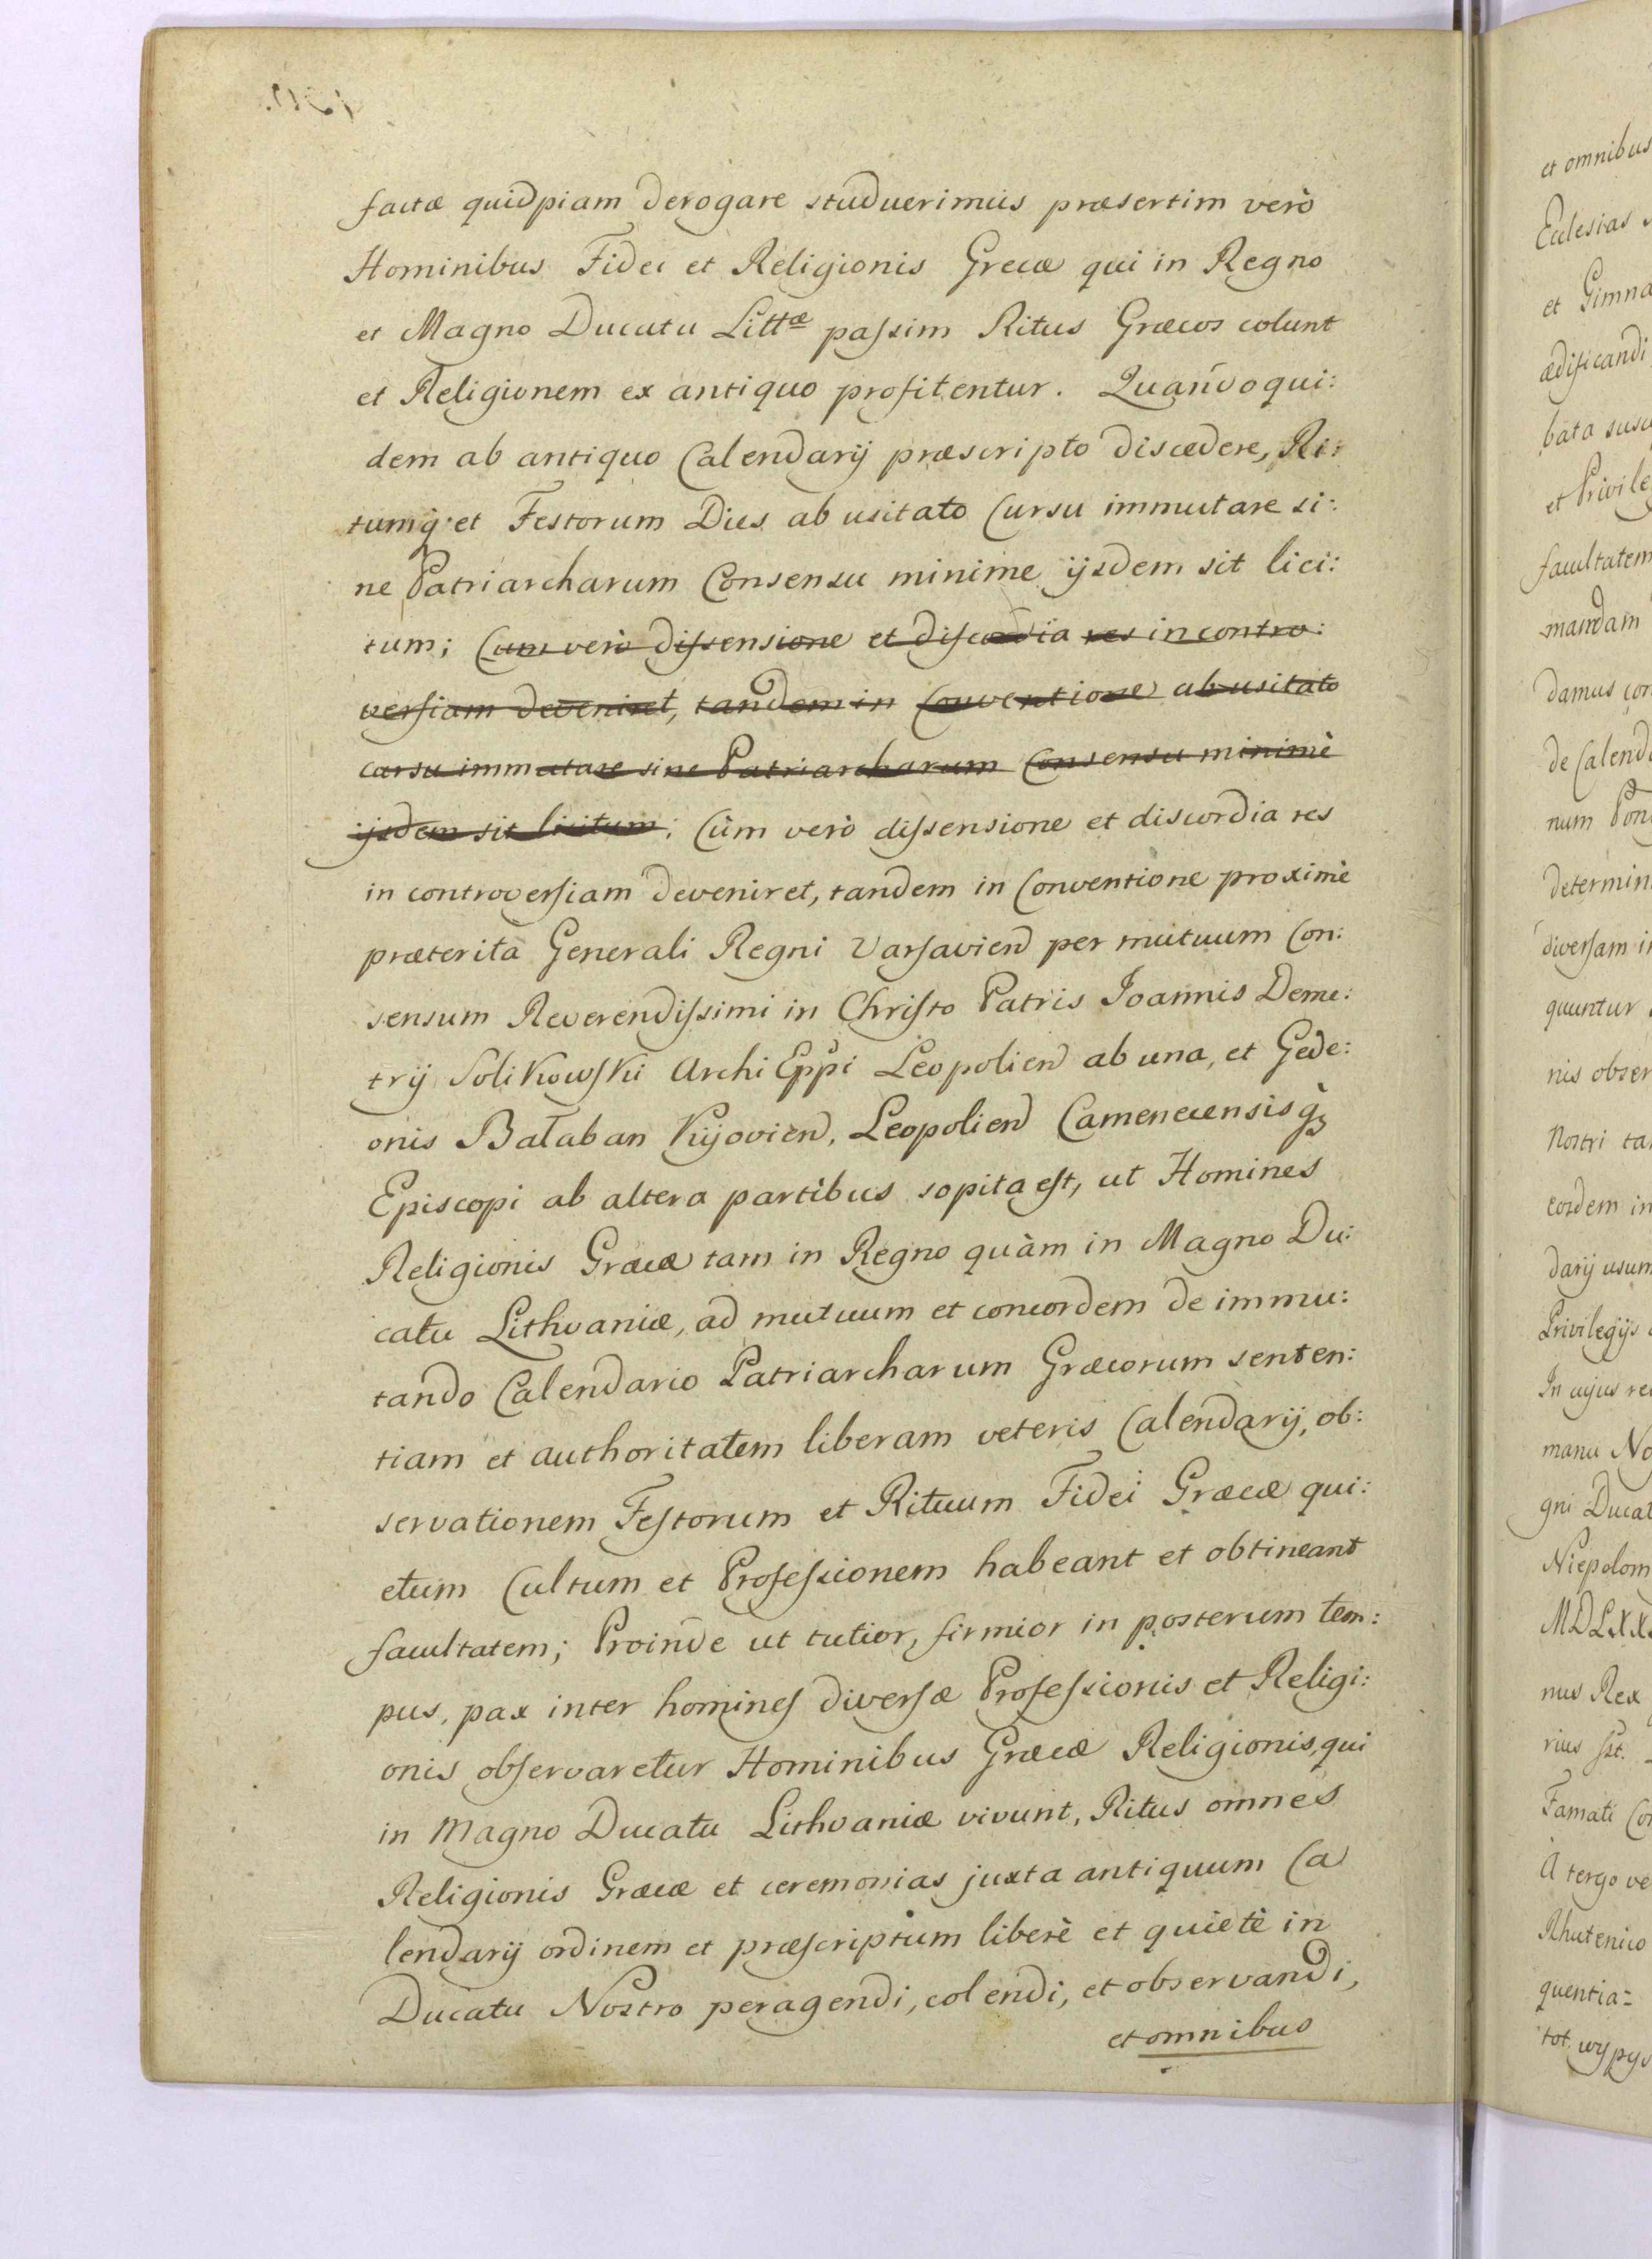 factæ quidpiam derogare studuerimus præsertim verò
Hominibus Fidei et Religionis Grecæ qui in Regno
et Magno Ducatu Littæ paſsim Ritus Græcos colunt
et Religionem ex antiquo profitentur. Quandoqui:
dem ab antiquo Calendarij præscripto discedere, Ri:
tumq. et Festorum Dies ab usitato Cursu immutare si:
ne Patriarcharum Consensu minime ijsdem sit lici:
tum; Cum verò diſsensione et discordia res in contro:
verſiam deveniret, tandem in Conventione ab usitato
cursu immutare sine Patriarcharum Consensu minimè
ijsdem sit licitum; Cùm verò diſsensione et discordia res
in controverſiam deveniret, tandem in Conventione proximè
præterità Generali Regni Varſavien per mutuum Con:
sensum Reverendiſsimi in Chriſto Patris Joannis Deme:
trij Solikowſki Archi Eppi Leopolien ab una, et Gede:
onis Bałaban Kijovien, Leopolien Camenecensisq
Episcopi ab altera partibus sopita eſt, ut Homines
Religionis Græcæ tam in Regno quàm in Magno Du:
catu Lithvaniæ, ad mutuum et concordem de immu:
tando Calendario Patriarcharum Græcorum senten:
tiam et authoritatem liberam veteris Calendarij, ob:
servationem Feſtorum et Rituum Fidei Græcæ qui:
etum Cultum et Profeſsionem habeant et obtineant
facultatem; Proinde ut tutior, firmior in posterum tem:
pus, pax inter homineſ diverſæ Profeſsionis et Religi:
onis obſervaretur Hominibus Græcæ Religionis, qui
in Magno Ducatu Lithvaniæ vivunt, Ritus omnes
Religionis Græcæ et ceremonias juxta antiquum Ca
lendarij ordinem et præſcriptum liberè et quietè in
Ducatu Nostro peragendi, colendi, et observandi,
et omnibus
et omnibus
Ecclesias
et Gimna
ædificandi
bata susc
et Privile
facultatem
mandam
damus con
de Calenda
num Pon
determin
diverſam in
quuntur
nis obser
Nostri ta
eosdem in
darij usum
Privilegijs
In cujus re
manu No
gni Ducat
Niepolom
MDLXX
nus Rex
rius sst.
Famati Co
A tergo ve
Rhutenico
quentia=
tot wypys